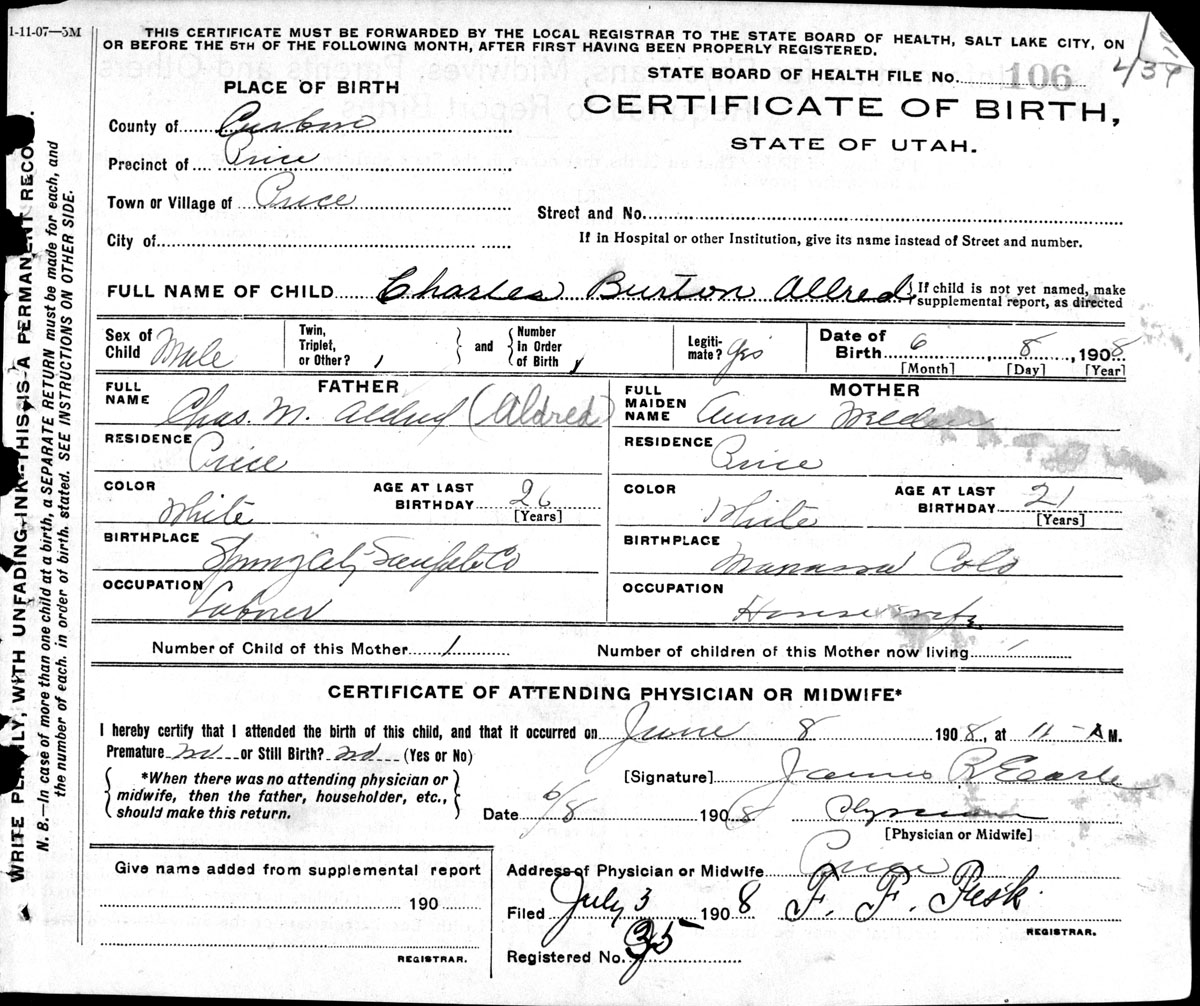 1-11-07—5M
THIS CERTIFICATE MUST BE FORWARDED BY THE LOCAL REGISTRAR TO THE STATE BOARD OF HEALTH, SALT LAKE CITY, ON
OR BEFORE THE 5TH OF THE FOLLOWING MONTH, AFTER FIRST HAVING BEEN PROPERLY REGISTERED.
STATE BOARD OF HEALTH FILE No. 106
CERTIFICATE OF BIRTH,
STATE OF UTAH.
PLACE OF BIRTH
County of Carbon
Precinct of Price
Town or Village of Price
City of
Street and No.
If in Hospital or other Institution, give its name instead of Street and number.
FULL NAME OF CHILD Charles Burton Allred
If child is not yet named, make
supplemental report, as directed
Sex of Child Male
Twin, Triplet, or Other? 1
and
Number In Order of Birth 1
Legiti- mate? Yes
Date of Birth 6, 8, 1908
[Month] [Day] [Year]
FATHER
FULL NAME Chas. M. Allred (Aldred)
RESIDENCE Price
COLOR White
AGE AT LAST BIRTHDAY 26
[Years]
BIRTHPLACE Spring City Sanpete Co
OCCUPATION Laborer
MOTHER
FULL MAIDEN NAME Anna
RESIDENCE Price
COLOR White
AGE AT LAST BIRTHDAY 21
[Years]
BIRTHPLACE Manassa Colo
OCCUPATION Housewife
Number of Child of this Mother 1
Number of children of this Mother now living 1
CERTIFICATE OF ATTENDING PHYSICIAN OR MIDWIFE*
I hereby certify that I attended the birth of this child, and that it occurred on June 8 1908, at 11- A M.
Premature no or Still Birth? no (Yes or No)
*When there was no attending physician or
midwife, then the father, householder, etc.,
should make this return.
[Signature] James R Earle
Date 6/8 1908 Physician
[Physician or Midwife]
Address of Physician or Midwife Price
Filed July 3 1908 F. F. Fisk
REGISTRAR.
Registered No. 35
Give name added from supplemental report
190
REGISTRAR.
WRITE PLAINLY, WITH UNFADING INK—THIS IS A PERMANENT RECORD.
N. B.—In case of more than one child at a birth, a SEPARATE RETURN must be made for each, and
the number of each, in order of birth, stated. SEE INSTRUCTIONS ON OTHER SIDE.